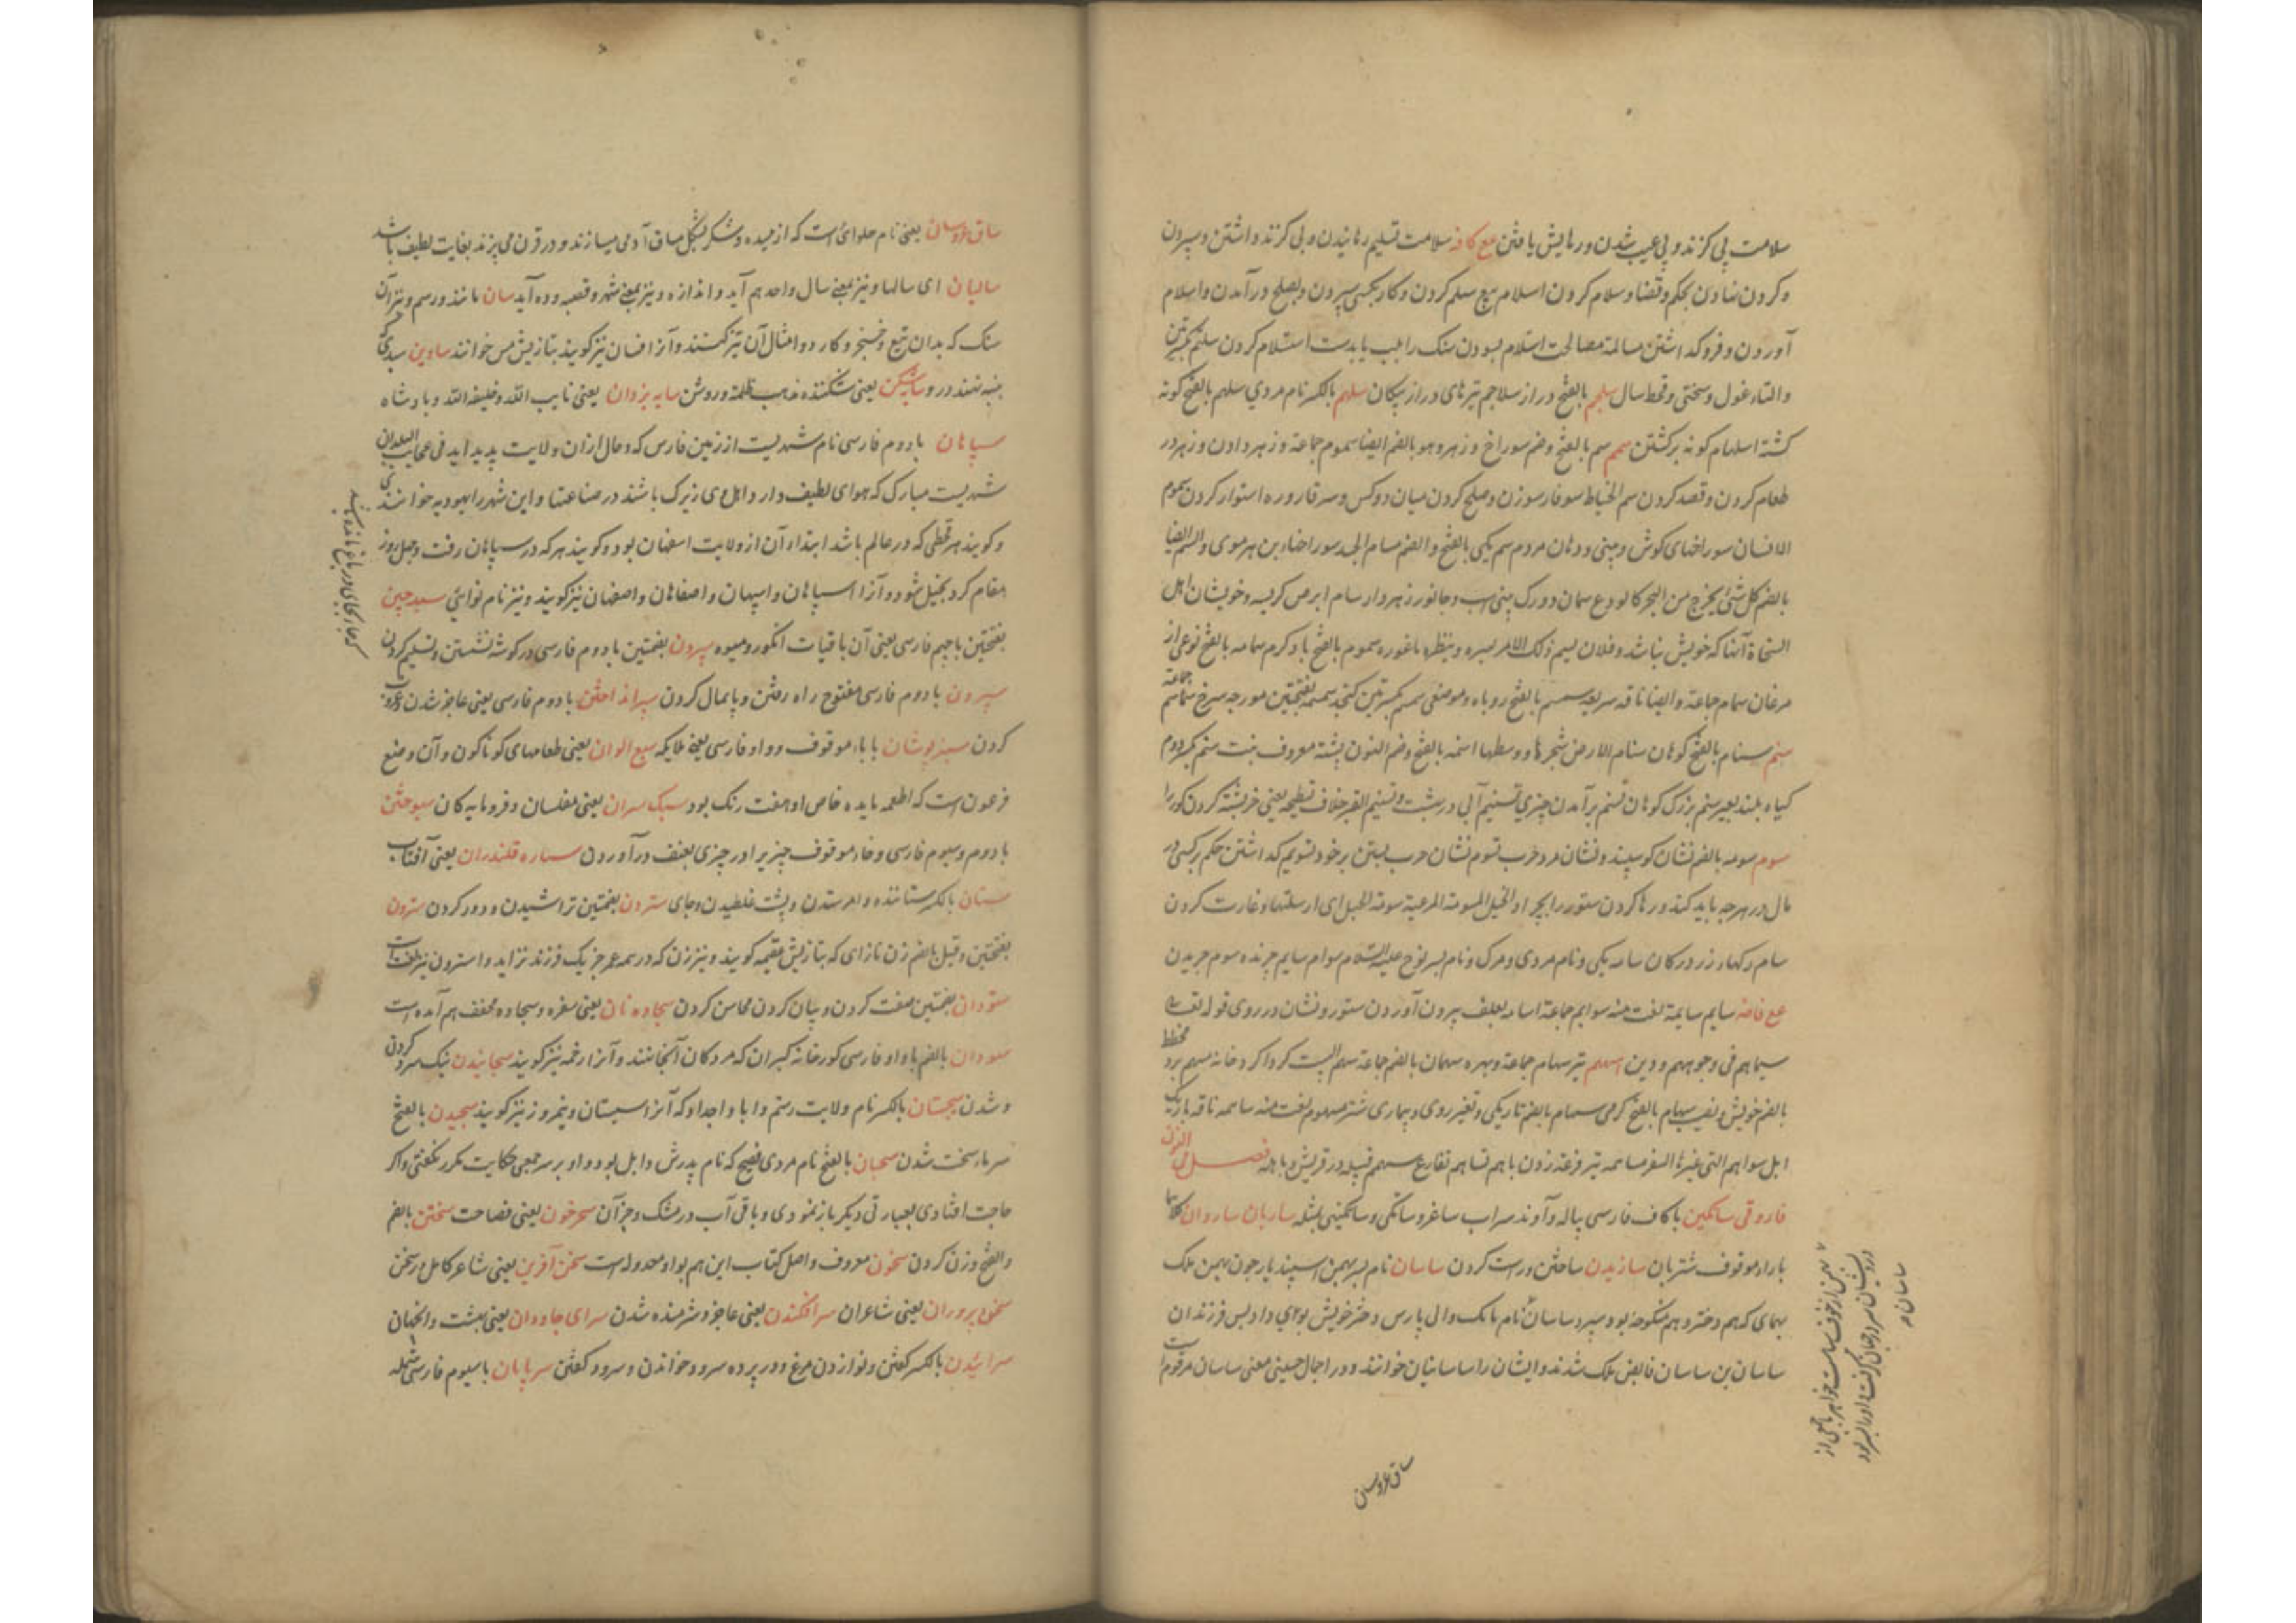 سلامت بی کزند و بی عیب شدن و رهایش یافتن مع کافه سلامت تسلیم رهانیدن و بی کزند داشتن و سپردن
و کردن نهادن بحکم و قضا و سلام کردن اسلام بیع سلم کردن و کار بکسی سپردن و بصلح در آمدن و اسلام
آوردن و فرو کذاشتن مسالمة مصالحت استلام بسودن سنک را بلب یا بدست استلام کردن
و التاء غول و سختی و قحط سال سلجم بالفتح دراز سلاجم تیرهای دراز پیکان سلهم بالکسر نام مردی سلهم بالفتح کونه
کشته اسلهام کونه برکشتن سمم سم بالفتح و ضم سوراخ و زهر و هو بالضم ایضا سموم جماعة و زهر دادن و زهر در
طعام کردن و قصد کردن سم الخیاط سوفار سوزن و صلح کردن میان دو کس و سر قاروره استوار کردن سموم
الانسان سوراخهای کوش و بینی و دهان مردم سم یکی بالفتح و الضم مسام الجسد سوراخهاء بن هر موی و السم ایضا
بالضم کل شی یخرج من البحر کالودع سمان دو رک بینی اسب و جانور زهردار سام ابرص کربسه و خویشان اهل
مرغان سمام جماعة و ایضا ناقه سریعه سمسم بالفتح روباه و موضعی سمسم بکسرتین کنجد سمسمه بفتحتین مورچه سرخ سماسم جماعة
سنم سنام بالفتح کوهان سنام الارض نحرها و وسطها اسنمه بالفتح و ضم النون پشته معروف نبت سنم بکسر دوم
کیاه بلند بعیر سنم بزرک کوهان تسنم برآمدن چیزی تسنیم آبی در بهشت و تسنیم القبر خلاف تسطیحه یعنی خرپشته کردن کور را
سوم سومه بالضم نشان کوسپند و نشان مرد حرب تسوم نشان حرب بستن بر خود تسویم کذاشتن حکم بر کسی در
مال در هرچه باید کند و رها کردن ستور را بچرا و الخیل المسومة المرعیة سومة الخیل ای ارسلتها و غارت کردن
سام رکهاء زر در کان سامه یکی و نام مردی و مرک و نام پسر نوح علیه السلام سوام سایم چرنده سوم چریدن
مع فاضه سایم سایمة لغت منه سوایم جماعة اسامه بعلف بیرون آوردن ستور و نشان در روی قوله تعالی
سیماهم فی وجوههم و دین سهم تیر سهام جماعة و بهره سهمان بالضم جماعة سهم البیت کرداکرد خانه مسهم برد مخطط
بالضم خویش و نصیب سهام بالفتح کرمی سهام بالضم تاریکی و تغیر روی و بیماری شتر مسهوم لغت منه ساهمه ناقه باریک
ابل سواهم التی غیرها السفر مساهمه تیر قرعه زدن باهم تساهم تقارع سهم قبیله در قریش و باهله فصل فی النون
فاروقی ساتکین با کاف فارسی پیاله و آوند سراب ساغر و ساتکی و ساتکینی مثله ساربان ساروان کلاهما
با راء موقوف شتربان سازیدن ساختن و راست کردن ساسان نام پسر بهمن اسپندیار چون بهمن ملک
بهمای که هم دختر و هم منکوحه بود سپرد ساسان نام بابک والی پارس دختر خویش بوی داد پس فرزندان
ساسان بن ساسان قابض ملک شدند و ایشان را ساسانیان خوانند و در اجمال حسینی معنی ساسان مرقوم است
ساق عروسان
ساق عروسان یعنی نام حلوائی است که از میده و شکر بشکل ساق آدمی میسازند و در قرن می پزند بغایت لطیف باشد
سالیان ای سالها و نیز بمعنی سال واحد هم آید و اندازه و نیز بمعنی شهر و قصبه و ده آید سان مانند و رسم و نیز آن
سنک که بدان تیغ و خنجر و کارد و امثال آن تیز کنند و آنرا فسان نیز کویند بتازیش مسن خوانند ساوین سبدی که
پنبه نهند در و سایه شکن یعنی شکننده مذهب ظلمة و روشن سایه یزدان یعنی نایب الله و خلیفه الله و پادشاه
سپاهان با دوم فارسی نام شهریست از زمین فارس که دجال از ان ولایت پدید آید فی عجایب البلدان
شهریست مبارک که هوای لطیف دارد و اهل وی زیرک باشند در صناعتها و این شهر را یهودیه خوانند
و کویند هر قحطی که در عالم باشد ابتداء آن از ولایت اصفهان بود و کویند هرکه در سپاهان رفت و چهل روز
مقام کرد بخیل شود و آنرا اسپاهان و اسپهان و اصفاهان و اصفهان نیز کویند و نیز نام نوائی سپد چین
بفتحتین با جیم فارسی یعنی آن باقیات انکور و میوه سپردن بضمتین با دوم فارسی در کوشه نشستن و تسلیم کردن
سپردن با دوم فارسی مفتوح راه رفتن و پایمال کردن سپر انداختن با دوم فارسی یعنی عاجز شدن و غروب
کردن سبزپوشان با باء موقوف و واو فارسی یعنی ملایکه سبع الوان یعنی طعامهای کوناکون و آن وضع
فرعون است که اطعمه مایده خاص او هفت رنک بود سبک سران یعنی مفلسان و فرومایه کان سپوختن
با دوم و سیوم فارسی و خاء موقوف چیزیرا در چیزی بعنف در آوردن ستاره قلندران یعنی آفتاب
ستان بالکسر ستاننده و امر ستدن و پشت غلطیدن و جای ستردن بضمتین تراشیدن و دور کردن سترون
بفتحتین و قیل بالضم زن نازای که بتازیش عقیمه کویند و نیز زن که در همه عمر جز یک فرزند نزاید و استرون نیز لغت است
ستودان بضمتین صفت کردن و بیان کردن محاسن کردن سجاده نان یعنی سفره و سجاده مخفف هم آمده است
ستودان بالضم با واو فارسی کورخانه کبران که مردکان آنجا نهند و آنرا دخمه نیز کویند سجانیدن نیک سرد کردن
و شدن سجستان بالکسر نام ولایت رستم و ابا و اجداد که آنرا سیستان و نیمروز نیز کویند سجیدن بالفتح
سرما سخت شدن سحبان بالفتح نام مردی فصیح که نام پدرش وایل بود و او بر سر جمعی حکایت مکرر نکفتی و اکر
حاجت افتادی بعبارتی دیکر باز نمودی و باقی آب در مشک و جز آن سحر خون یعنی فصاحت سختن بالضم
و الفتح وزن کردن سخون معروف و اصل کتاب این هم بواو معدوله است سخن آفرین یعنی شاعر کامل در سخن
سخن پروران یعنی شاعران سر افکندن یعنی عاجز و شرمنده شدن سرای جاودان یعنی بهشت و انجهان
سرائیدن بالکسر کفتن و نوازدن مرغ و در پرده سرود خواندن و سرود کفتن سرپایان با سیوم فارسی شمله